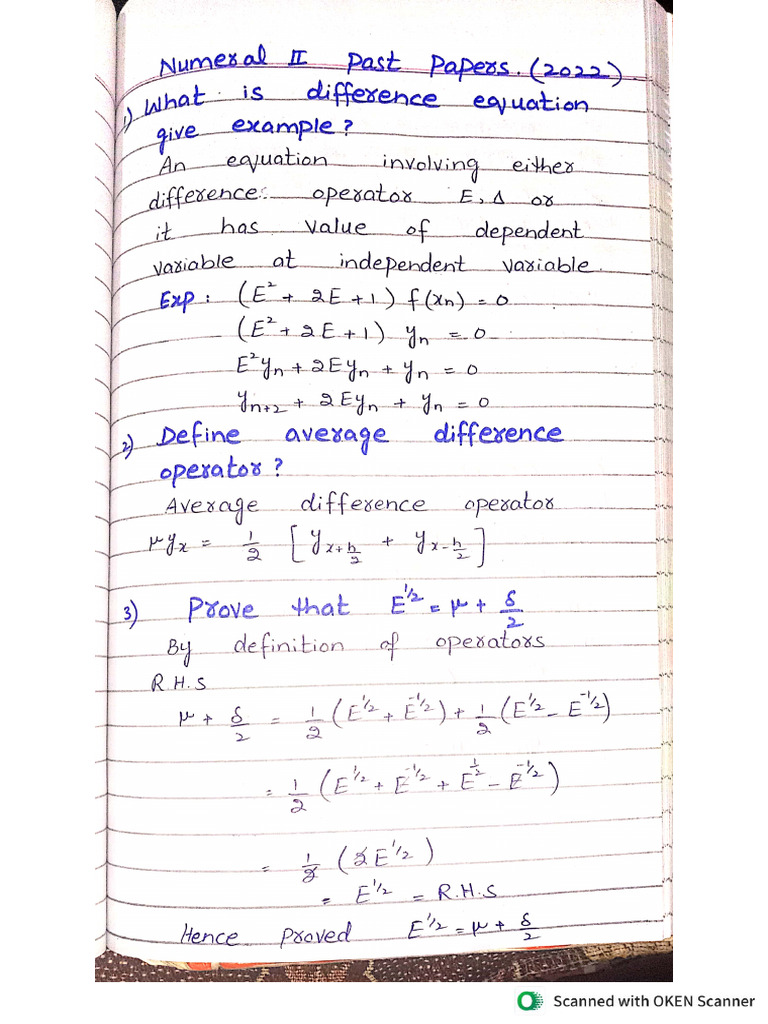 Numeral II Past Papers. (2022)
1) What is difference equation
give example?
An equation involving either
difference operator E, Δ or
it has value of dependent
variable at independent variable.
Exp: (E² + 2E + 1) f(xn) = 0
(E² + 2E + 1) yₙ = 0
E²yₙ + 2Eyₙ + yₙ = 0
yₙ₊₂ + 2Eyₙ + yₙ = 0
2) Define average difference
operator?
Average difference operator
μyₓ = 1/2 [y_{x+h/2} + y_{x-h/2}]
3) Prove that E^{1/2} = μ + δ/2
By definition of operators
R.H.S
μ + δ/2 = 1/2 (E^{1/2} + E^{-1/2}) + 1/2 (E^{1/2} - E^{-1/2})
= 1/2 (E^{1/2} + E^{-1/2} + E^{1/2} - E^{-1/2})
= 1/2 (2E^{1/2})
= E^{1/2} = R.H.S
Hence proved E^{1/2} = μ + δ/2
Scanned with OKEN Scanner